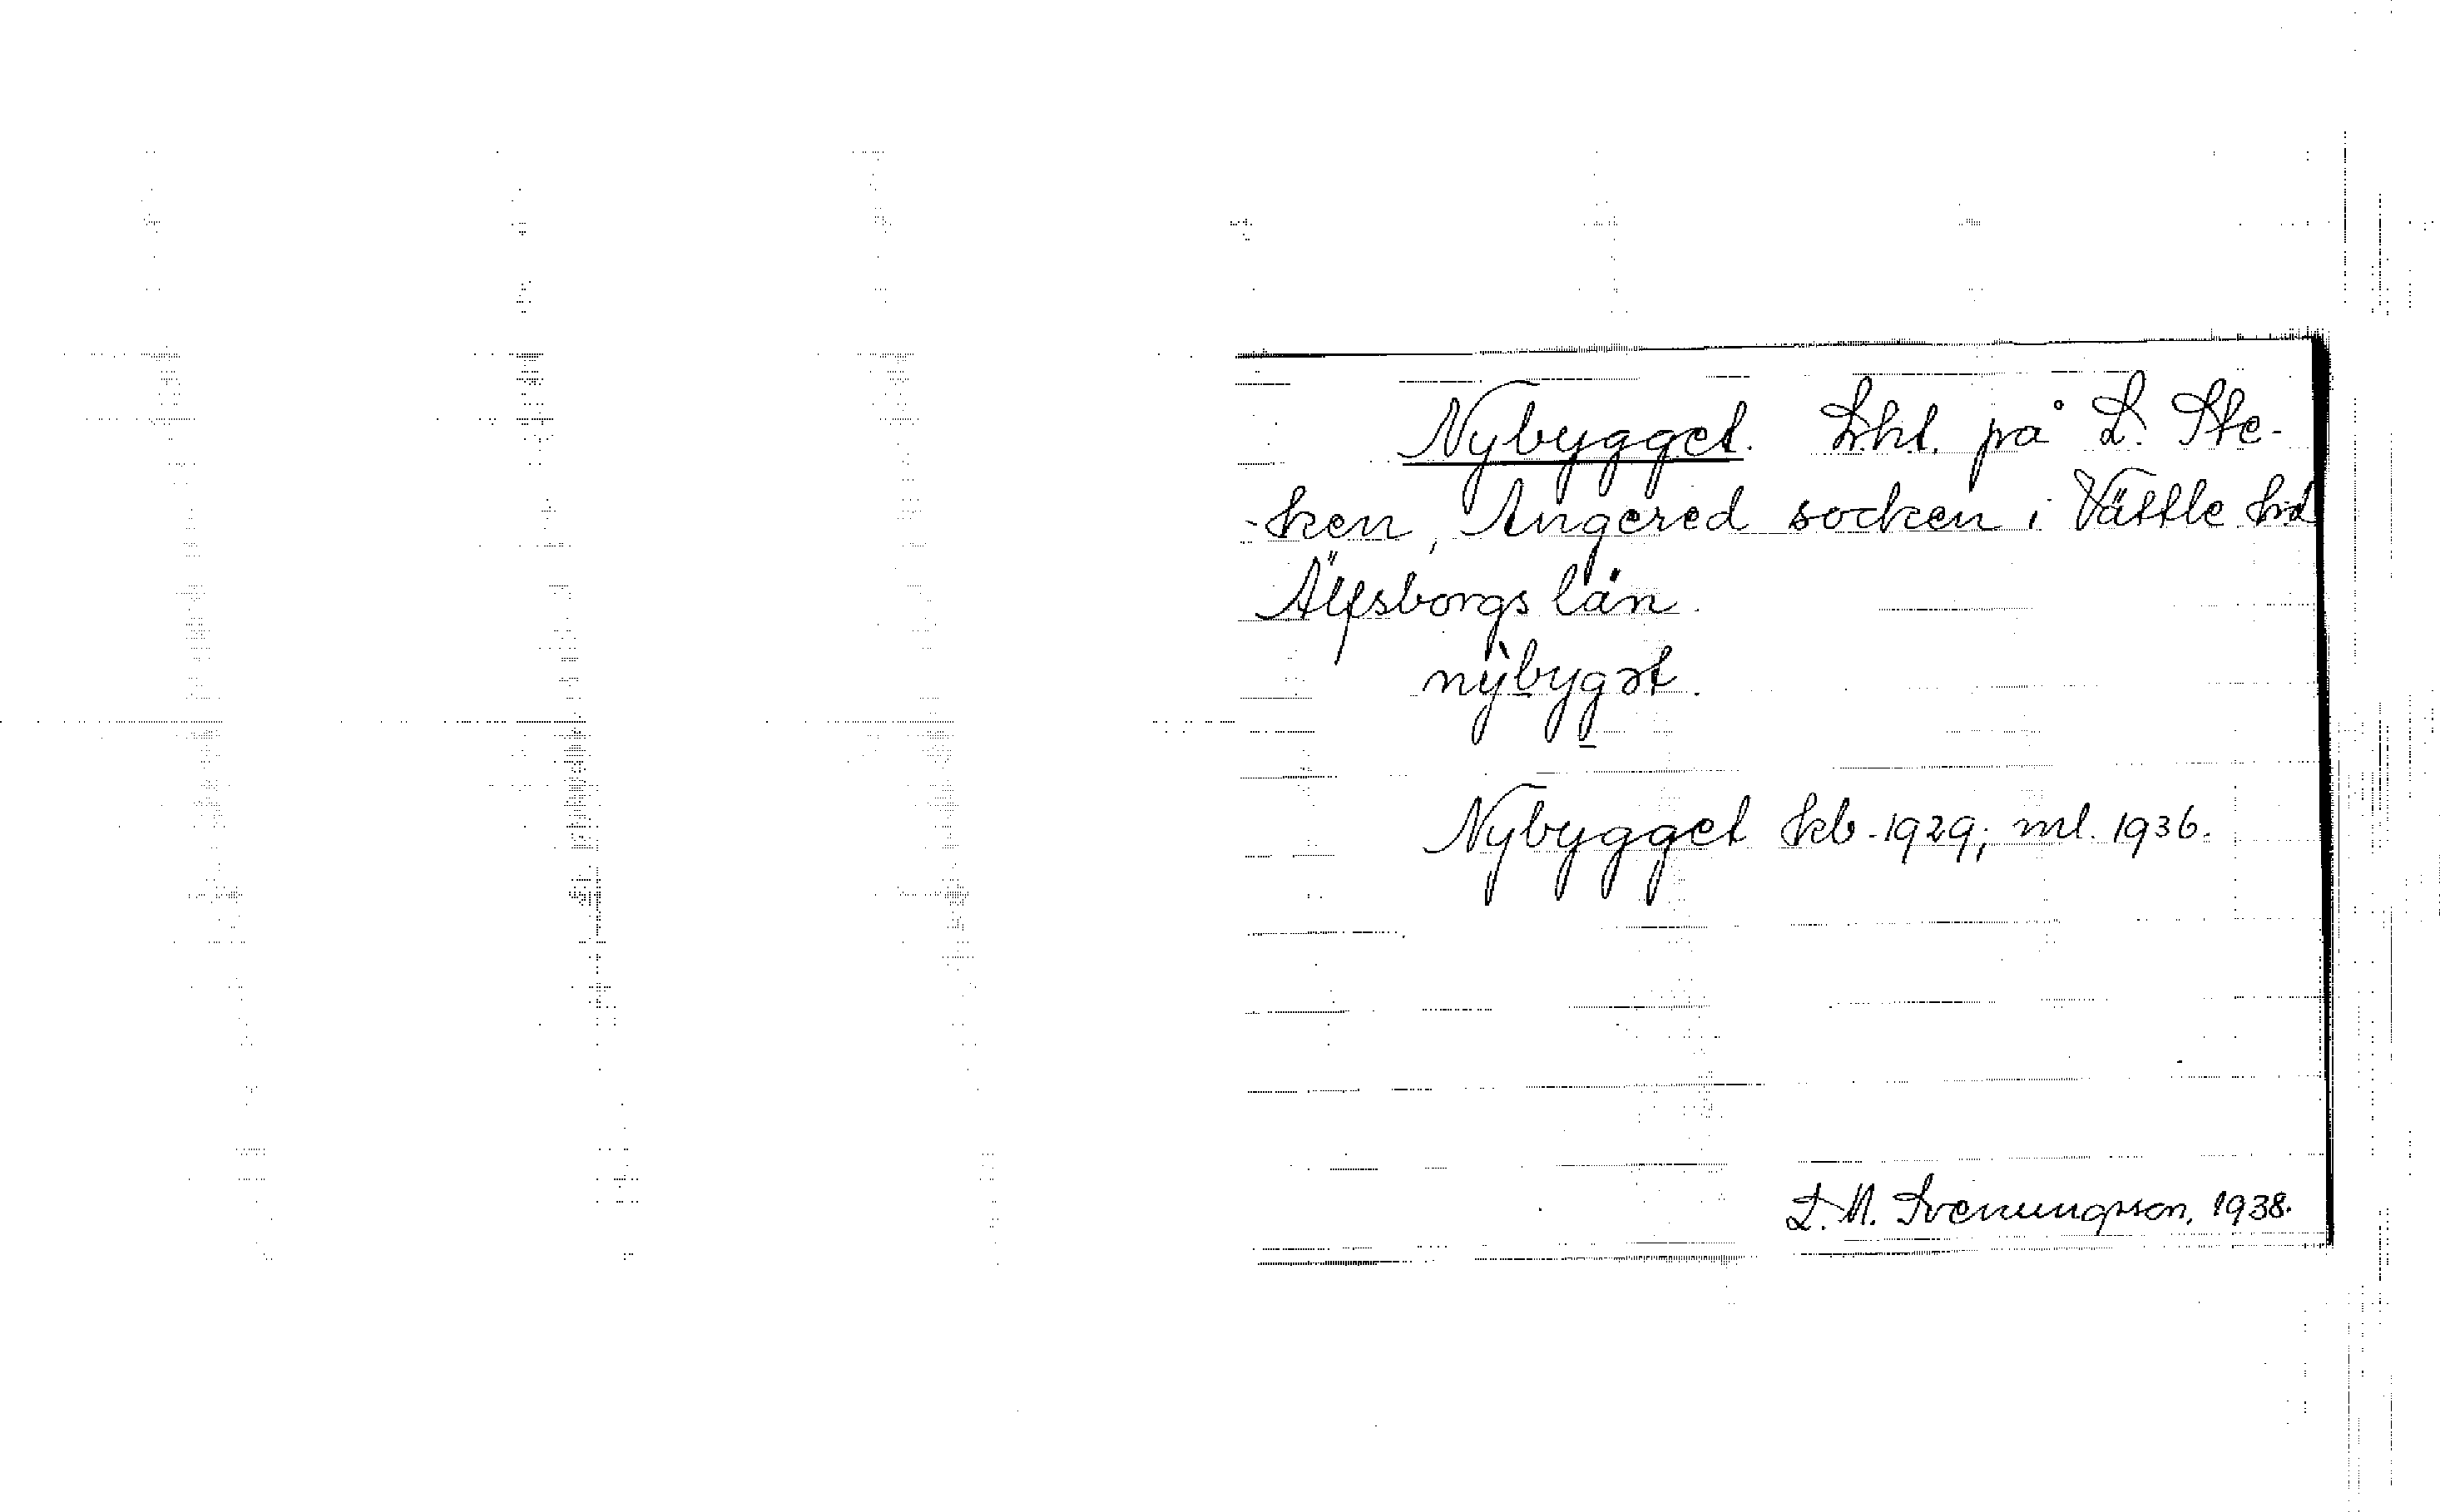 Nybygget. Lht. på L. Ste-
-ken, Angered socken i Vättle hd
Älfsborgs län.
nỳbygət.
Nybygget kb. 1929; ml. 1936.
L. M. Svenungsson, 1938.